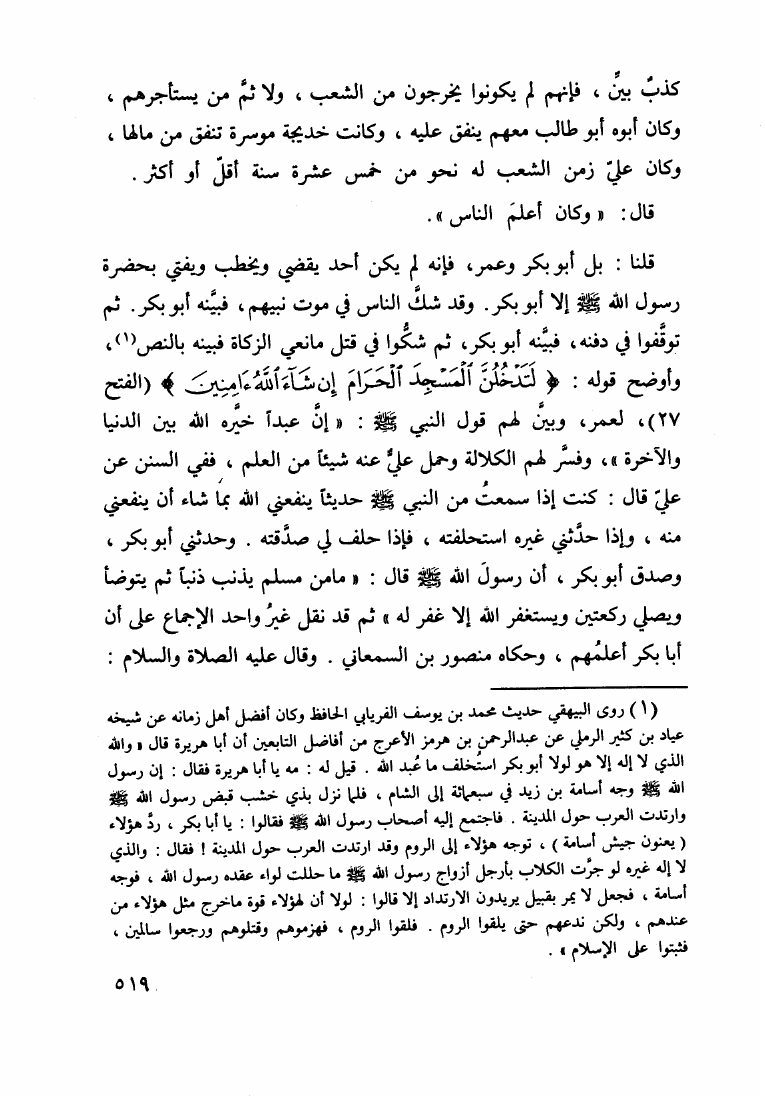 كذبٌ بينٌ ، فإنهم لم يكونوا يخرجون من الشعب ، ولا ثمَّ من يستأجرهم ،
وكان أبوه أبو طالب معهم ينفق عليه ، وكانت خديجة موسرة تنفق من مالها ،
وكان عليّ زمن الشعب له نحو من خمس عشرة سنة أقلّ أو أكثر .
قال : « وكان أعلمَ الناس » .
قلنا : بل أبو بكر وعمر، فإنه لم يكن أحد يقضي ويخطب ويفتي بحضرة
رسول الله ﷺ إلا أبو بكر. وقد شكَّ الناس في موت نبيهم، فبيَّنه أبو بكر. ثم
توقَّفوا في دفنه، فبيَّنه أبو بكر، ثم شكُّوا في قتل مانعي الزكاة فبينه بالنص(١)،
وأوضح قوله : ﴿ لَتَدْخُلُنَّ ٱلْمَسْجِدَ ٱلْحَرَامَ إِن شَآءَ ٱللَّهُ ءَامِنِينَ ﴾ (الفتح
٢٧)، لعمر، وبينَّ لهم قول النبي ﷺ : « إنَّ عبداً خيَّره الله بين الدنيا
والآخرة »، وفسَّر لهم الكلالة وحمل عليٌّ عنه شيئاً من العلم ، ففي السنن عن
عليّ قال : كنت إذا سمعتُ من النبي ﷺ حديثاً ينفعني الله بما شاء أن ينفعني
منه ، وإذا حدَّثني غيره استحلفته ، فإذا حلف لي صدَّقته . وحدثني أبو بكر ،
وصدق أبو بكر ، أن رسولَ الله ﷺ قال : « مامن مسلم يذنب ذنباً ثم يتوضأ
ويصلي ركعتين ويستغفر الله إلا غفر له » ثم قد نقل غيرُ واحد الإجماع على أن
أبا بكر أعلمُهم ، وحكاه منصور بن السمعاني . وقال عليه الصلاة والسلام :
(١) روى البيهقي حديث محمد بن يوسف الفريابي الحافظ وكان أفضل أهل زمانه عن شيخه
عياد بن كثير الرملي عن عبدالرحمن بن هرمز الأعرج من أفاضل التابعين أن أبا هريرة قال « والله
الذي لا إله إلا هو لولا أبو بكر استُخلف ما عُبد الله . قيل له : مه يا أبا هريرة فقال : إن رسول
الله ﷺ وجه أسامة بن زيد في سبعمائة إلى الشام ، فلما نزل بذي خشب قبض رسول الله ﷺ
وارتدت العرب حول المدينة . فاجتمع إليه أصحاب رسول الله ﷺ فقالوا : يا أبا بكر ، ردَّ هؤلاء
( يعنون جيش أسامة ) ، توجه هؤلاء إلى الروم وقد ارتدت العرب حول المدينة ! فقال : والذي
لا إله غيره لو جرَّت الكلاب بأرجل أزواج رسول الله ﷺ ما حللت لواء عقده رسول الله ، فوجه
أسامة ، فجعل لا يمر بقبيل يريدون الارتداد إلا قالوا : لولا أن لهؤلاء قوة ماخرج مثل هؤلاء من
عندهم ، ولكن ندعهم حتى يلقوا الروم . فلقوا الروم ، فهزموهم وقتلوهم ورجعوا سالمين ،
فثبتوا على الإسلام » .
٥١٩